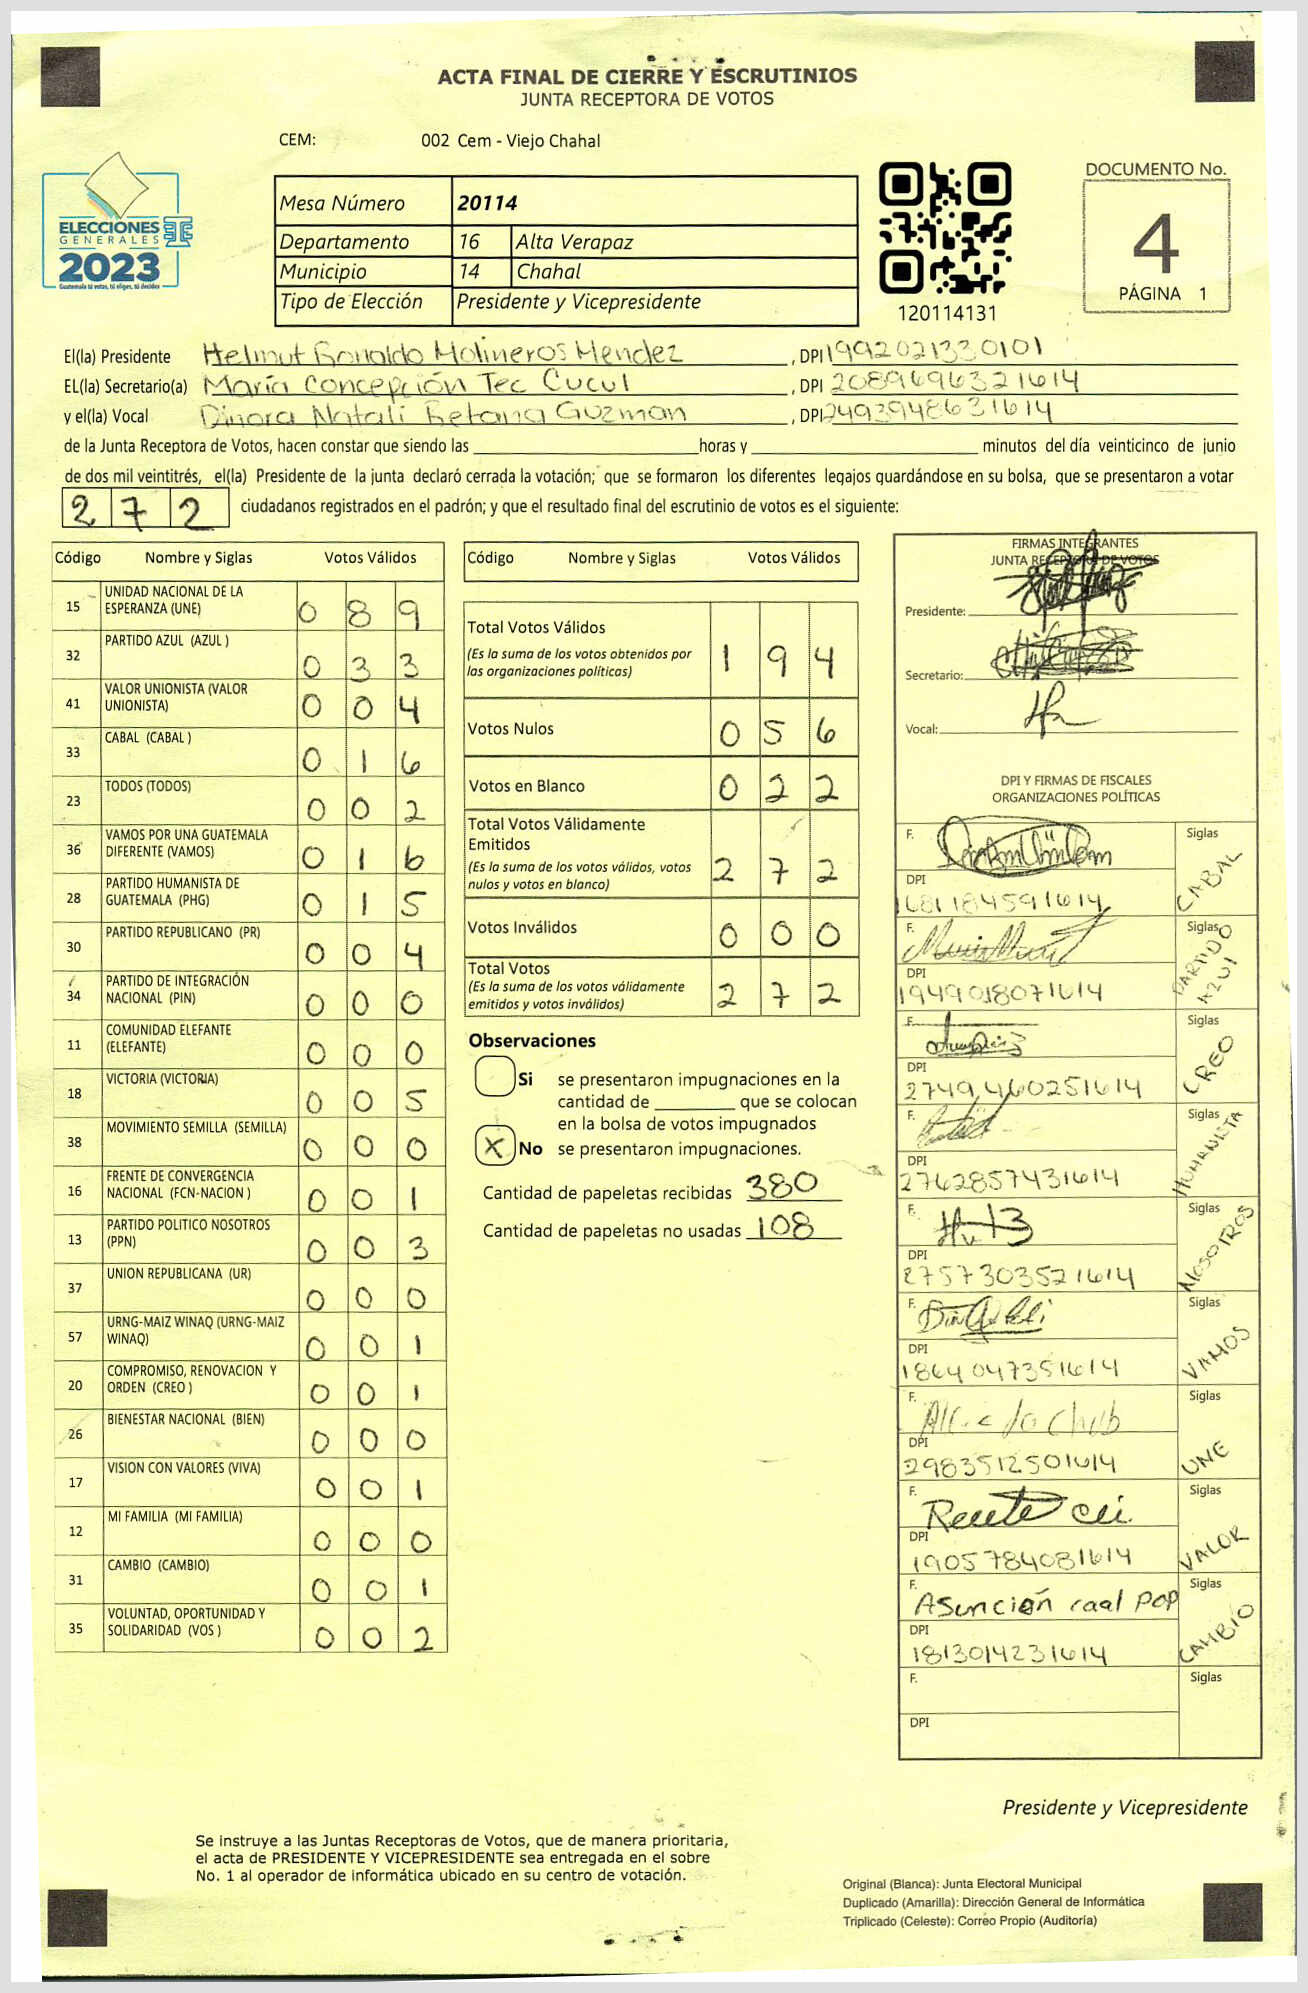 ACTA FINAL DE CIERRE Y ESCRUTINIOS
JUNTA RECEPTORA DE VOTOS
CEM: 002 Cem - Viejo Chahal
ELECCIONES
GENERALES
2023
Guatemala tú votas, tú eliges, tú decides
Mesa Número 20114
Departamento 16 Alta Verapaz
Municipio 14 Chahal
Tipo de Elección Presidente y Vicepresidente
120114131
DOCUMENTO No.
4
PÁGINA 1
El(la) Presidente Helmut Ronaldo Molineros Mendez, DPI 1992021330101
EL(la) Secretario(a) María Concepción Tec Cucul, DPI 2089696321614
y el(la) Vocal Dinora Natali Retana Guzman, DPI 2493948631614
de la Junta Receptora de Votos, hacen constar que siendo las ____ horas y ____ minutos del día veinticinco de junio
de dos mil veintitrés, el(la) Presidente de la junta declaró cerrada la votación; que se formaron los diferentes legajos guardándose en su bolsa, que se presentaron a votar
272 ciudadanos registrados en el padrón; y que el resultado final del escrutinio de votos es el siguiente:
Código Nombre y Siglas Votos Válidos
15 UNIDAD NACIONAL DE LA
ESPERANZA (UNE) 089
32 PARTIDO AZUL (AZUL ) 033
41 VALOR UNIONISTA (VALOR
UNIONISTA) 004
33 CABAL (CABAL ) 016
23 TODOS (TODOS) 002
36 VAMOS POR UNA GUATEMALA
DIFERENTE (VAMOS) 016
28 PARTIDO HUMANISTA DE
GUATEMALA (PHG) 015
30 PARTIDO REPUBLICANO (PR) 004
34 PARTIDO DE INTEGRACIÓN
NACIONAL (PIN) 000
11 COMUNIDAD ELEFANTE
(ELEFANTE) 000
18 VICTORIA (VICTORIA) 005
38 MOVIMIENTO SEMILLA (SEMILLA) 000
16 FRENTE DE CONVERGENCIA
NACIONAL (FCN-NACION ) 001
13 PARTIDO POLITICO NOSOTROS
(PPN) 003
37 UNION REPUBLICANA (UR) 000
57 URNG-MAIZ WINAQ (URNG-MAIZ
WINAQ) 001
20 COMPROMISO, RENOVACION Y
ORDEN (CREO ) 001
26 BIENESTAR NACIONAL (BIEN) 000
17 VISION CON VALORES (VIVA) 001
12 MI FAMILIA (MI FAMILIA) 000
31 CAMBIO (CAMBIO) 001
35 VOLUNTAD, OPORTUNIDAD Y
SOLIDARIDAD (VOS ) 002
Código Nombre y Siglas Votos Válidos
Total Votos Válidos 194
(Es la suma de los votos obtenidos por
las organizaciones políticas)
Votos Nulos 056
Votos en Blanco 022
Total Votos Válidamente
Emitidos 272
(Es la suma de los votos válidos, votos
nulos y votos en blanco)
Votos Inválidos 000
Total Votos 272
(Es la suma de los votos válidamente
emitidos y votos inválidos)
Observaciones
Si se presentaron impugnaciones en la
cantidad de ____ que se colocan
en la bolsa de votos impugnados
X No se presentaron impugnaciones.
Cantidad de papeletas recibidas 380
Cantidad de papeletas no usadas 108
FIRMAS INTEGRANTES
JUNTA RECEPTORA DE VOTOS
Presidente:
Secretario:
Vocal:
DPI Y FIRMAS DE FISCALES
ORGANIZACIONES POLÍTICAS
F. Siglas CABAL
DPI
1681184591614
F. Siglas PARTIDO AZUL
DPI
1949018071614
F. Siglas CREO
DPI
2749460251614
F. Siglas HUMANISTA
DPI
2762857431614
F. Siglas NOSOTROS
DPI
2757303521614
F. Siglas VAMOS
DPI
1864047351614
F. Siglas UNE
DPI
2983512501614
F. Siglas VALOR
DPI
1905784081614
F. Asunción caal pop Siglas CAMBIO
DPI
1813014231614
F. Siglas
DPI
Presidente y Vicepresidente
Se instruye a las Juntas Receptoras de Votos, que de manera prioritaria,
el acta de PRESIDENTE Y VICEPRESIDENTE sea entregada en el sobre
No. 1 al operador de informática ubicado en su centro de votación.
Original (Blanca): Junta Electoral Municipal
Duplicado (Amarilla): Dirección General de Informática
Triplicado (Celeste): Correo Propio (Auditoría)